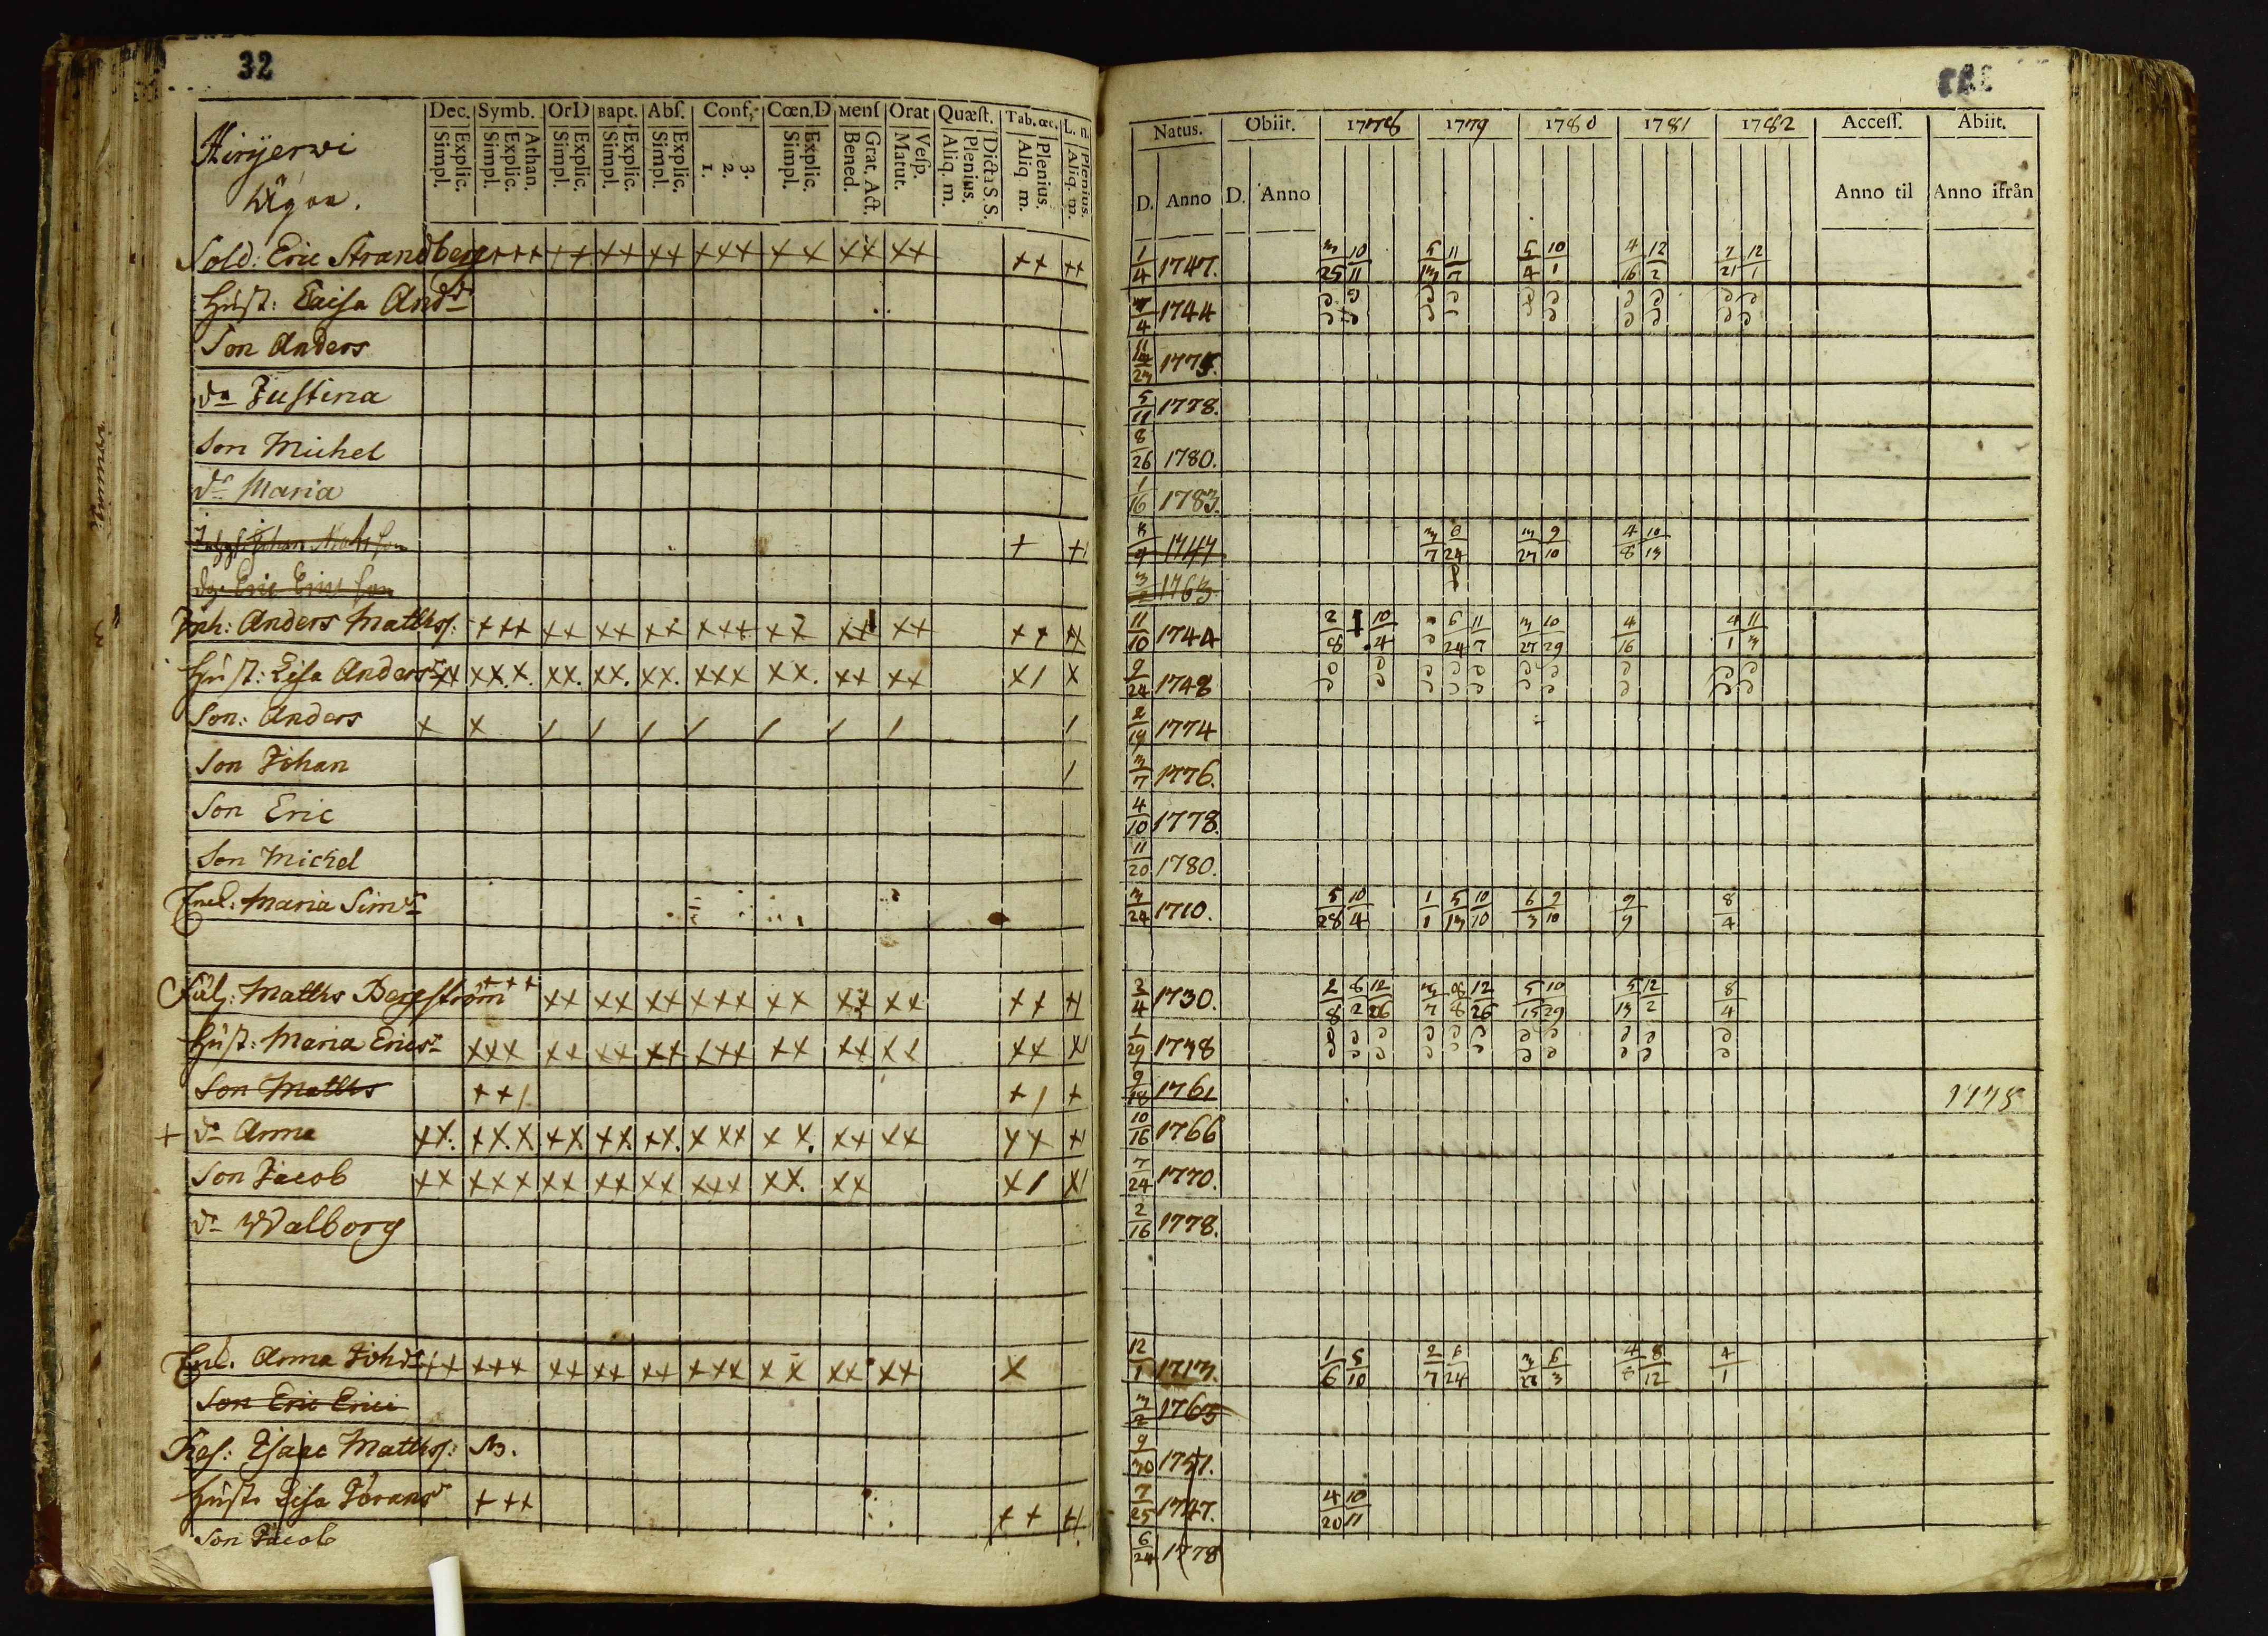 32
Hirijerwi
Ägor.
Dec. Symb. OrD Bapt. Abſ. Conf. Cœn.D Menſ Orat Quæſt. Tab. œc. L. n.
Explic. Simpl. Athan. Explic. Simpl. Explic. Simpl. Explic. Simpl. Explic. Simpl. 3. 2. 1. Explic. Simpl. Grat. Act. Bened. Veſp. Matut. Dicta S.S. Plenius. Aliq. m. Plenius. Aliq. m. Plenius. Aliq. m.
Natus. Obiit. 1778 1779 1780 1781 1782 Acceſſ. Abiit.
D. Anno D. Anno Anno til Anno ifrån
Sold: Eric Strandberg +++ ++ ++ ++ +++ ++ ++ ++ ++ ++ 1/4 1747. 3/25 10/11 5/13 11/7 5/4 10/1 4/16 12/2 7/21 12/1
Hust: Caisa Andr 4 1744
Son Anders 11 1775.
dr Justina 5/11 1778.
Son Michel 8/26 1780.
dr Maria 1/16 1783.
Johan + + 1747 3/7 24 3/27 9/10 4/8 10/13
Eric Erics son 3 1763
Inh: Anders Matths: +++ ++ ++ ++ +++ ++ ++ ++ ++ ++ 11/10 1744 2/8 10/4 6/24 11/7 3/27 10/29 4/16 4/1 11/3
Hust: Lisa Andersdr ++ +++ ++ ++ ++ +++ ++ ++ ++ +/ + 9/24 1748
Son: Anders + + / / / / / / / / 2/19 1774
Son Johan / 3/7 1776.
Son Eric 4/10 1778.
Son Michel 11/20 1780.
Enel: Maria Simsdr 3/24 1710. 5/28 10/4 1/1 5/13 10/10 6/3 9/10 9/9 8/4
Fälj: Matths Bergström +++ ++ ++ ++ +++ ++ ++ ++ ++ ++ 3/4 1730. 2/8 6/2 12/26 3/7 8/8 12/26 5/15 10/29 5/13 12/2 8/4
Hust: Maria Ericsdr +++ ++ ++ ++ +++ ++ ++ ++ ++ + 1/29 1738
Son Matths ++/ +/ + 9/18 1761 1778
+ dr Anna ++ +++ ++ ++ ++ +++ ++ ++ ++ ++ + 10/16 1766
Son Jacob ++ +++ ++ ++ ++ +++ ++ ++ +/ + 7/24 1770.
dr Walborg 2/16 1778.
Enl. Anna Johsdr ++ +++ ++ ++ ++ +++ ++ ++ ++ + 12/1 1713. 1/6 5/10 2/7 6/24 3/27 6/3 4/8 8/12 4/1
Son Eric Erici 3/2 1763
Kas: Isaac Matths: 9/30 1751.
Hust: Lisa Göransdr +++ ++ ++ 7/25 1747. 4/20 10/11
Son Jacob 6/24 1778